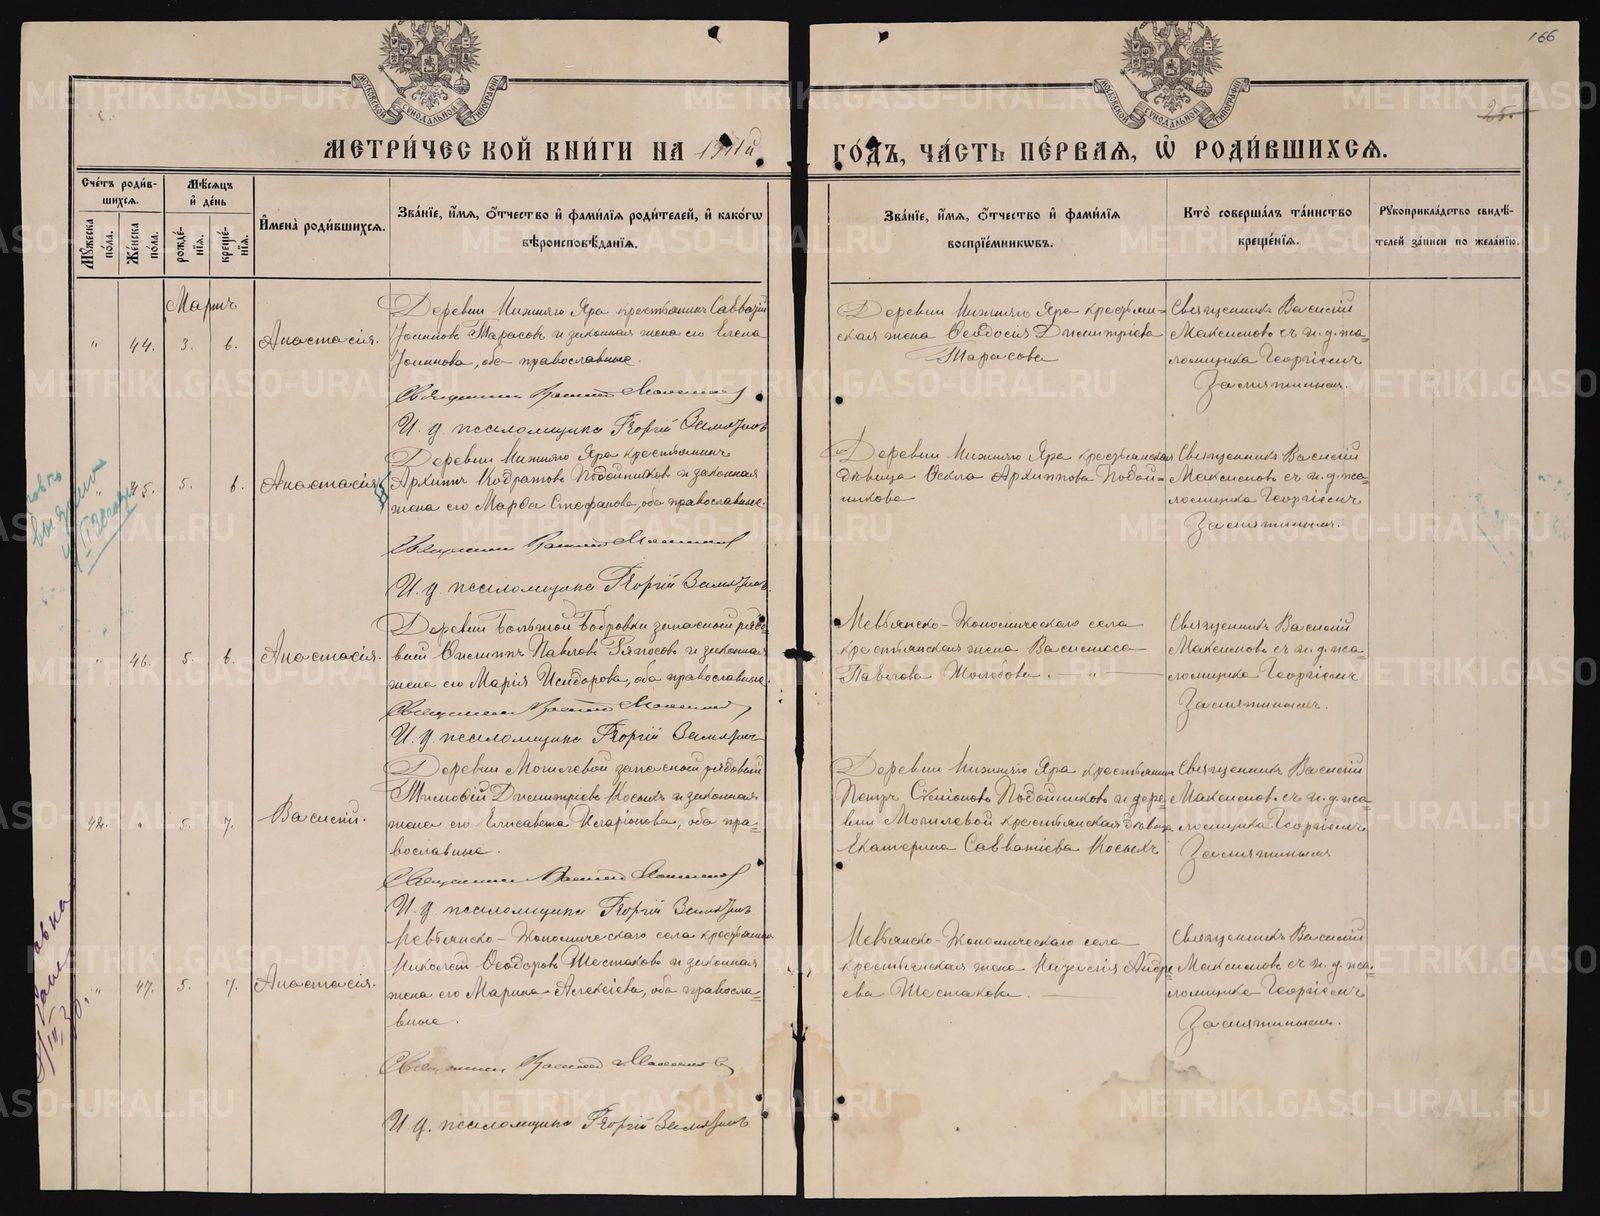 166
25
МЕТРИЧЕСКОЙ КНИГИ НА 1911й ГОДЪ, ЧАСТЬ ПЕРВАЯ, Ѡ РОДИВШИХСЯ.
МОСКОВСКОЙ СѴНОДАЛЬНОЙ ТИПОГРАФІИ
МОСКОВСКОЙ СѴНОДАЛЬНОЙ ТИПОГРАФІИ
Счетъ родив-
шихся.
Мужеска пола.
Женска пола.
Мѣсяцъ
и день
рожде-
нія.
креще-
нія.
Имена родившихся.
Званіе, имя, отчество и фамилія родителей, и какогѡ
вѣроисповѣданія.
Званіе, имя, отчество и фамилія
воспріемникѡвъ.
Кто совершалъ таинство
крещенія.
Рукоприкладство свидѣ-
телей записи по желанію.
Мартъ
" 44. 3. 6. Анастасія.
Деревни Нижняго Яра крестьянинъ Савватій
Тарасовъ и законная жена его Елена
, оба православные.
Священникъ Василій Максимовъ
И. д. псаломщика Георгій Замятинъ
Деревни Нижняго Яра крестьян-
ская жена Ѳеодосія Димитріева
Тарасова
Священникъ Василій
Максимовъ съ и. д. пса-
ломщика Георгіемъ
Замятинымъ.
" 45. 5. 6. Анастасія
Деревни Нижняго Яра крестьянинъ
Архиппъ Кодратовъ Подойниковъ и законная
жена его Марѳа Стефанова, оба православные.
Священникъ Василій Максимовъ
И. д. псаломщика Георгій Замятинъ
Деревни Нижняго Яра крестьянская
дѣвица Ѳекла Архиппова Подой-
никова
Священникъ Василій
Максимовъ съ и. д. пса-
ломщика Георгіемъ
Замятинымъ.
" 46. 5. 6. Анастасія.
Деревни Большой Бобровки запасной рядо-
вый Филиппъ Павловъ и законная
жена его Марія Исидорова, оба православные.
Священникъ Василій Максимовъ
И. д. псаломщика Георгій Замятинъ
Невьянско-Экономическаго села
крестьянская жена Васисса
Павлова Жолобова. — " —
Священникъ Василій
Максимовъ съ и. д. пса-
ломщика Георгіемъ
Замятинымъ.
42. " 5. 7. Василій.
Деревни Могилевой запасной рядовый
Тимоѳей Димитріевъ Косыхъ и законная
жена его Елисавета Иларіонова, оба пра-
вославные.
Священникъ Василій Максимовъ
И. д. псаломщика Георгій Замятинъ
Деревни Нижняго Яра крестьянинъ
Петръ Симеоновъ Подойниковъ и дере-
вни Могилевой крестьянская дѣвица
Екатерина Савватіева Косыхъ
Священникъ Василій
Максимовъ съ и. д. пса-
ломщика Георгіемъ
Замятинымъ
" 47. 5. 7. Анастасія.
Невьянско-Экономическаго села крестьянинъ
Николай Ѳеодоровъ Шестаковъ и законная
жена его Марина Алексіева, оба правосла-
вные.
Священникъ Василій Максимовъ
И. д. псаломщика Георгій Замятинъ
Невьянско-Экономическаго села
крестьянская жена Андре-
ева Шестакова.
Священникъ Василій
Максимовъ съ и. д. пса-
ломщика Георгіемъ
Замятинымъ.
METRIKI.GASO-URAL.RU